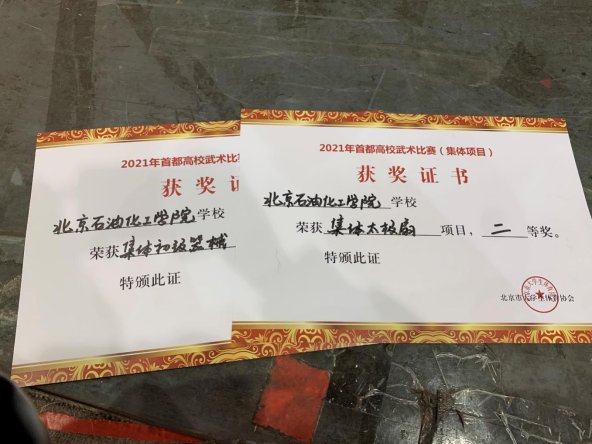 2021年首都高校武术比赛
获奖证
北京石油化工学院学校
荣获集体初级器械
特颁此证
2021年首都高校武术比赛（集体项目）
获奖证书
北京石油化工学院学校
荣获集体太极扇项目，二等奖。
特颁此证
北京市大学生体育协会